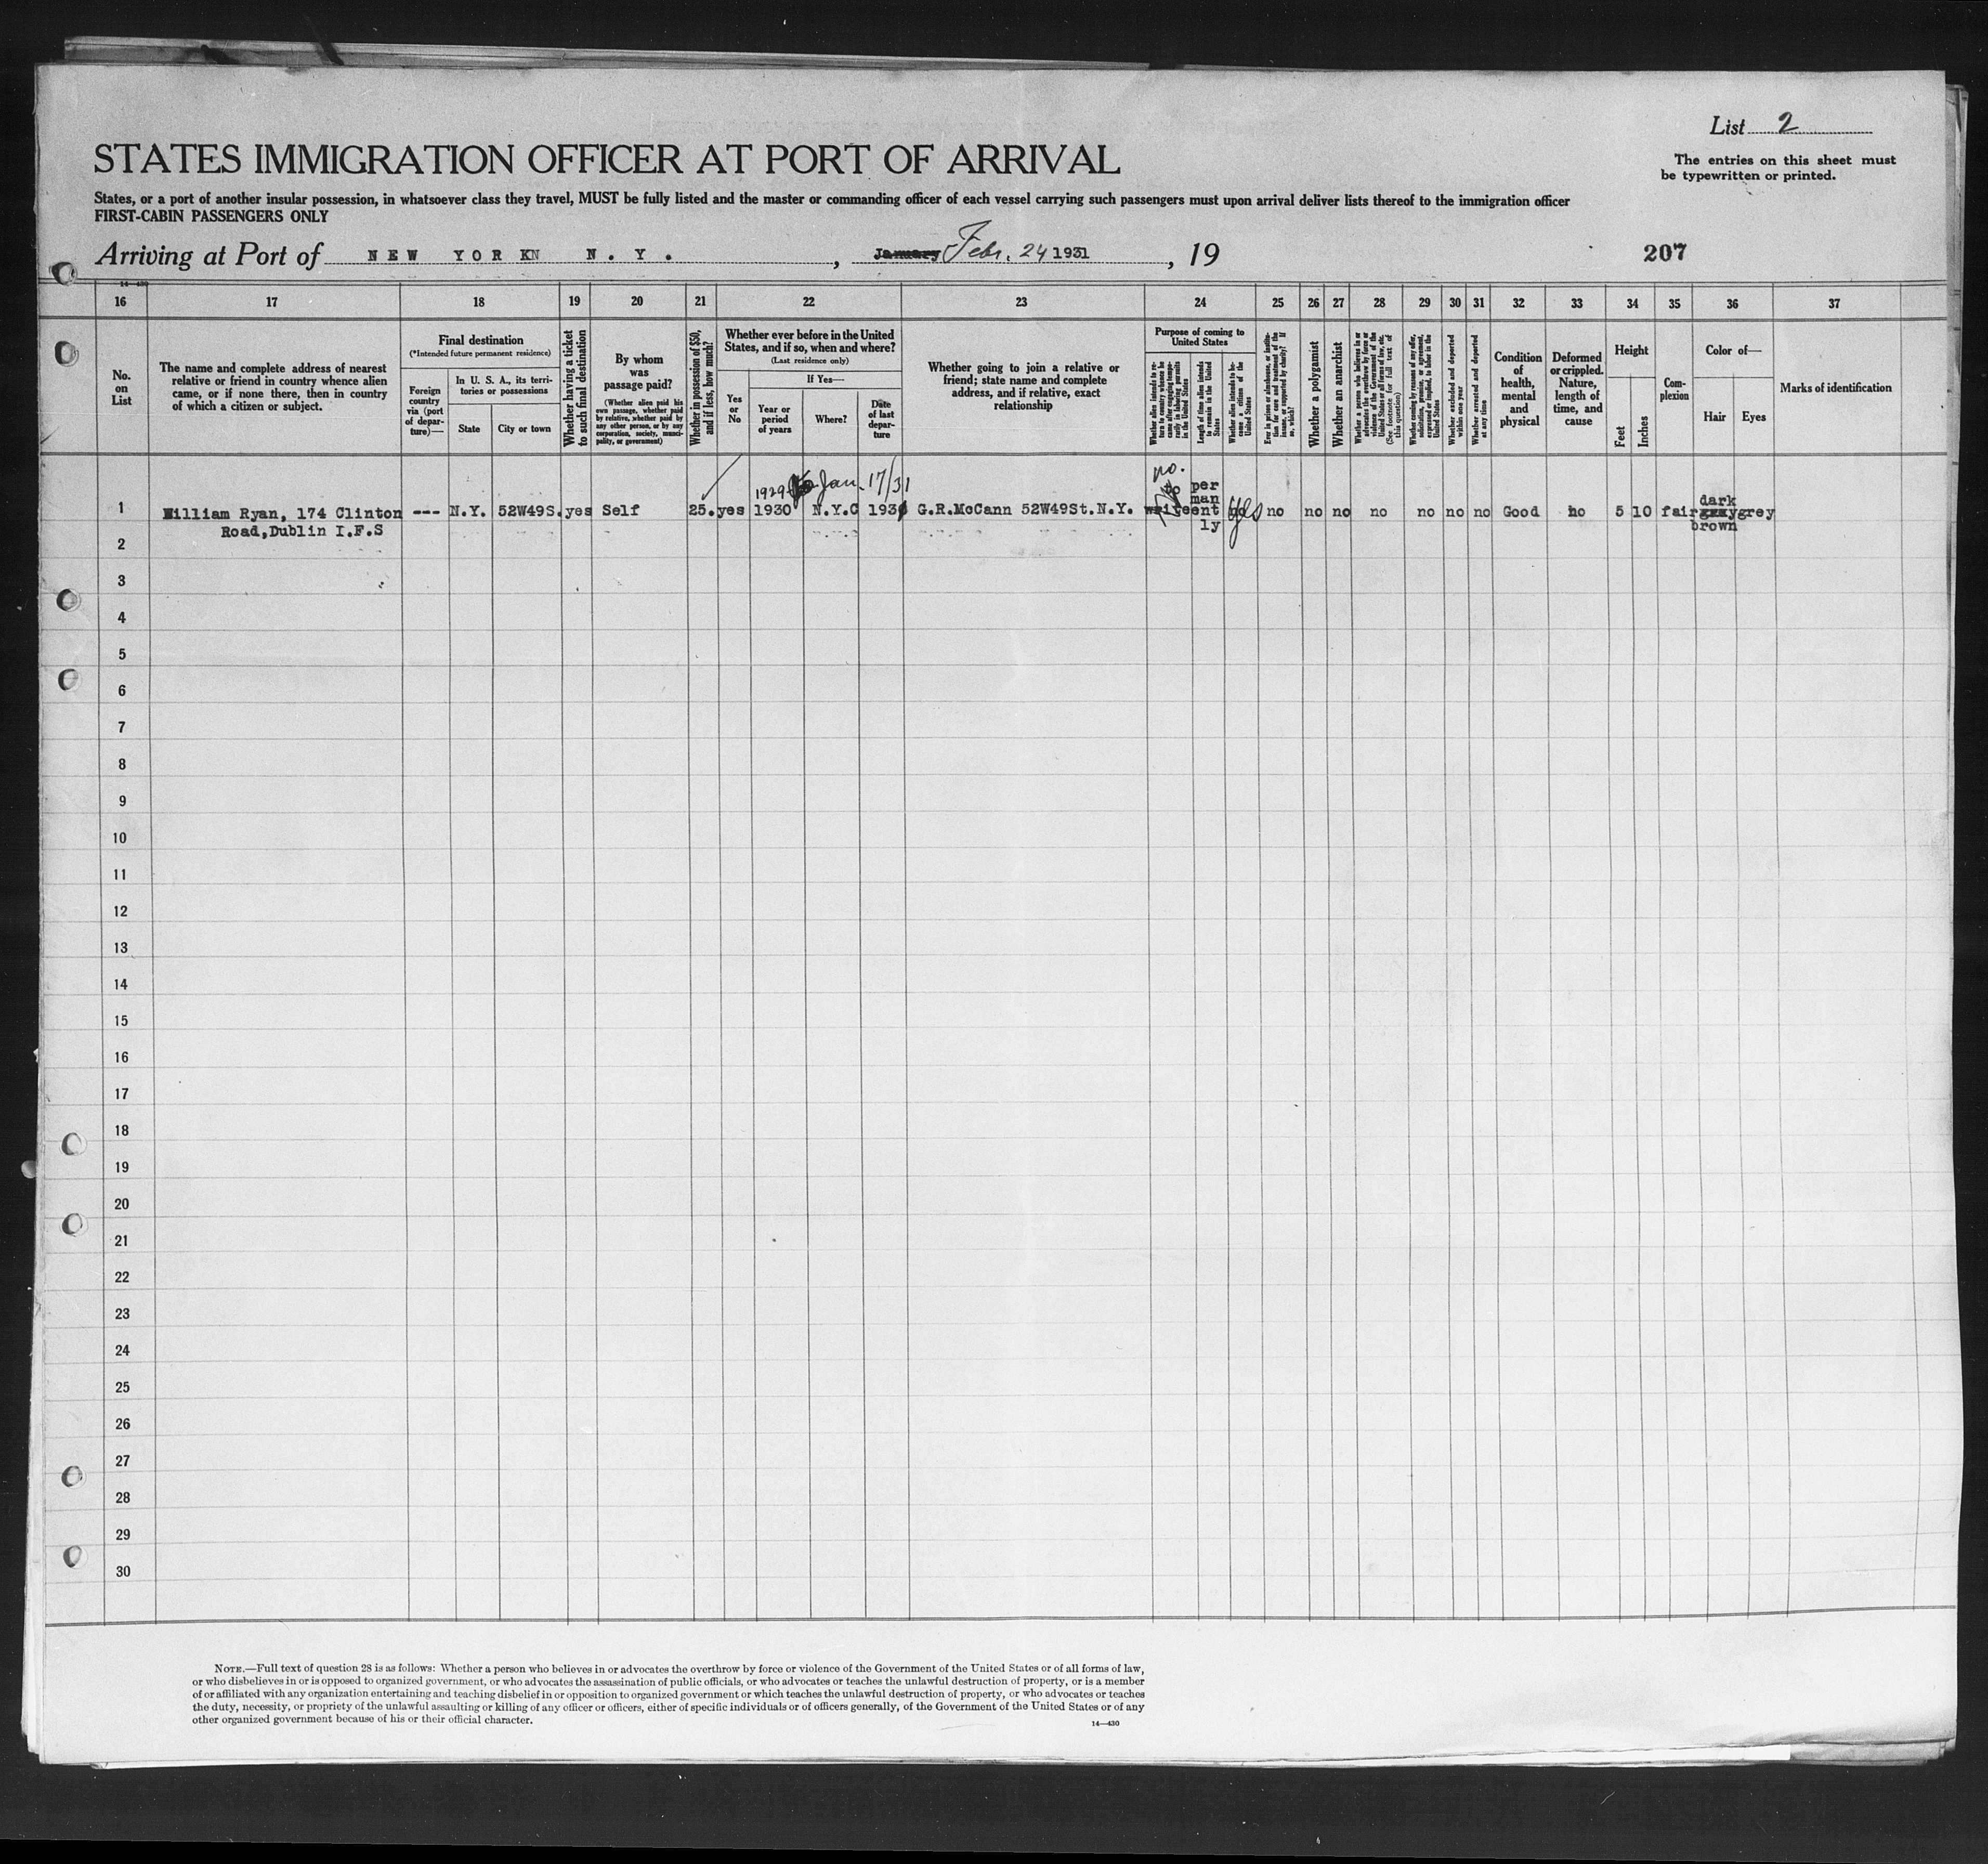 List 2
The entries on this sheet must
be typewritten or printed.
STATES IMMIGRATION OFFICER AT PORT OF ARRIVAL
States, or a port of another insular possession, in whatsoever class they travel, MUST be fully listed and the master or commanding officer of each vessel carrying such passengers must upon arrival deliver lists thereof to the immigration officer
FIRST-CABIN PASSENGERS ONLY
Arriving at Port of NEW YORK N. Y. , January Febr. 24 1931 , 19
207
14-430
16 17 18 19 20 21 22 23 24 25 26 27 28 29 30 31 32 33 34 35 36 37
No.
on
List
The name and complete address of nearest
relative or friend in country whence alien
came, or if none there, then in country
of which a citizen or subject.
Final destination
(*Intended future permanent residence)
Foreign
country
via (port
of depar-
ture)—
In U. S. A., its terri-
tories or possessions
State
City or town
Whether having a ticket
to such final destination
By whom
was
passage paid?
(Whether alien paid his
own passage, whether paid
by relative, whether paid by
any other person, or by any
corporation, society, munici-
pality, or government)
Whether in possession of $50,
and if less, how much?
Whether ever before in the United
States, and if so, when and where?
(Last residence only)
Yes
or
No
If Yes—
Year or
period
of years
Where?
Date
of last
depar-
ture
Whether going to join a relative or
friend; state name and complete
address, and if relative, exact
relationship
Purpose of coming to
United States
Whether alien intends to re-
turn to country whence he
came after engaging tempo-
rarily in laboring pursuits
in the United States
Length of time alien intends
to remain in the United
States
Whether alien intends to be-
come a citizen of the
United States
Ever in prison or almshouse, or institu-
tion for care and treatment of the
insane, or supported by charity? If
so, which?
Whether a polygamist
Whether an anarchist
Whether a person who believes in or
advocates the overthrow by force or
violence of the Government of the
United States or all forms of law, etc.
(See footnote for full text of
this question)
Whether coming by reason of any offer,
solicitation, promise, or agreement,
expressed or implied, to labor in the
United States
Whether excluded and deported
within one year
Whether arrested and deported
at any time
Condition
of
health,
mental
and
physical
Deformed
or crippled.
Nature,
length of
time, and
cause
Height
Feet
Inches
Com-
plexion
Color of—
Hair
Eyes
Marks of identification
no.
1929 Jan. 17/31
to per
man dark
1 William Ryan, 174 Clinton --- N.Y. 52W49S. yes Self 25. yes 1930 N.Y.C 193 G.R.McCann 52W49St.N.Y. write ent yes no no no no no no no Good no 5 10 fair gray grey
Road,Dublin I.F.S ly brown
2
3
4
5
6
7
8
9
10
11
12
13
14
15
16
17
18
19
20
21
22
23
24
25
26
27
28
29
30
NOTE.—Full text of question 28 is as follows: Whether a person who believes in or advocates the overthrow by force or violence of the Government of the United States or of all forms of law,
or who disbelieves in or is opposed to organized government, or who advocates the assassination of public officials, or who advocates or teaches the unlawful destruction of property, or is a member
of or affiliated with any organization entertaining and teaching disbelief in or opposition to organized government or which teaches the unlawful destruction of property, or who advocates or teaches
the duty, necessity, or propriety of the unlawful assaulting or killing of any officer or officers, either of specific individuals or of officers generally, of the Government of the United States or of any
other organized government because of his or their official character.
14—430